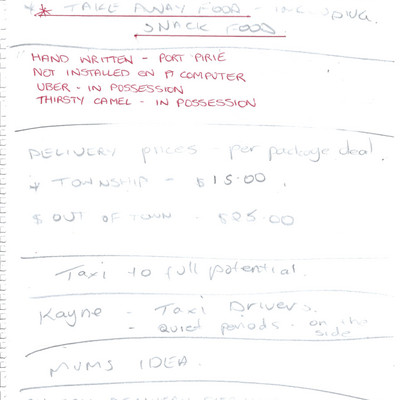 * TAKE AWAY FOOD - INCLUDING
SNACK FOOD.
HAND WRITTEN - PORT PIRIE
NOT INSTALLED ON A COMPUTER
UBER - IN POSSESSION
THIRSTY CAMEL - IN POSSESSION
DELIVERY prices - per package deal.
* TOWNSHIP - $15.00.
$ OUT OF TOWN - $25.00
Taxi to full potential.
Kayne - Taxi Drivers.
- Quiet periods - on the
side
MUMS IDEA.